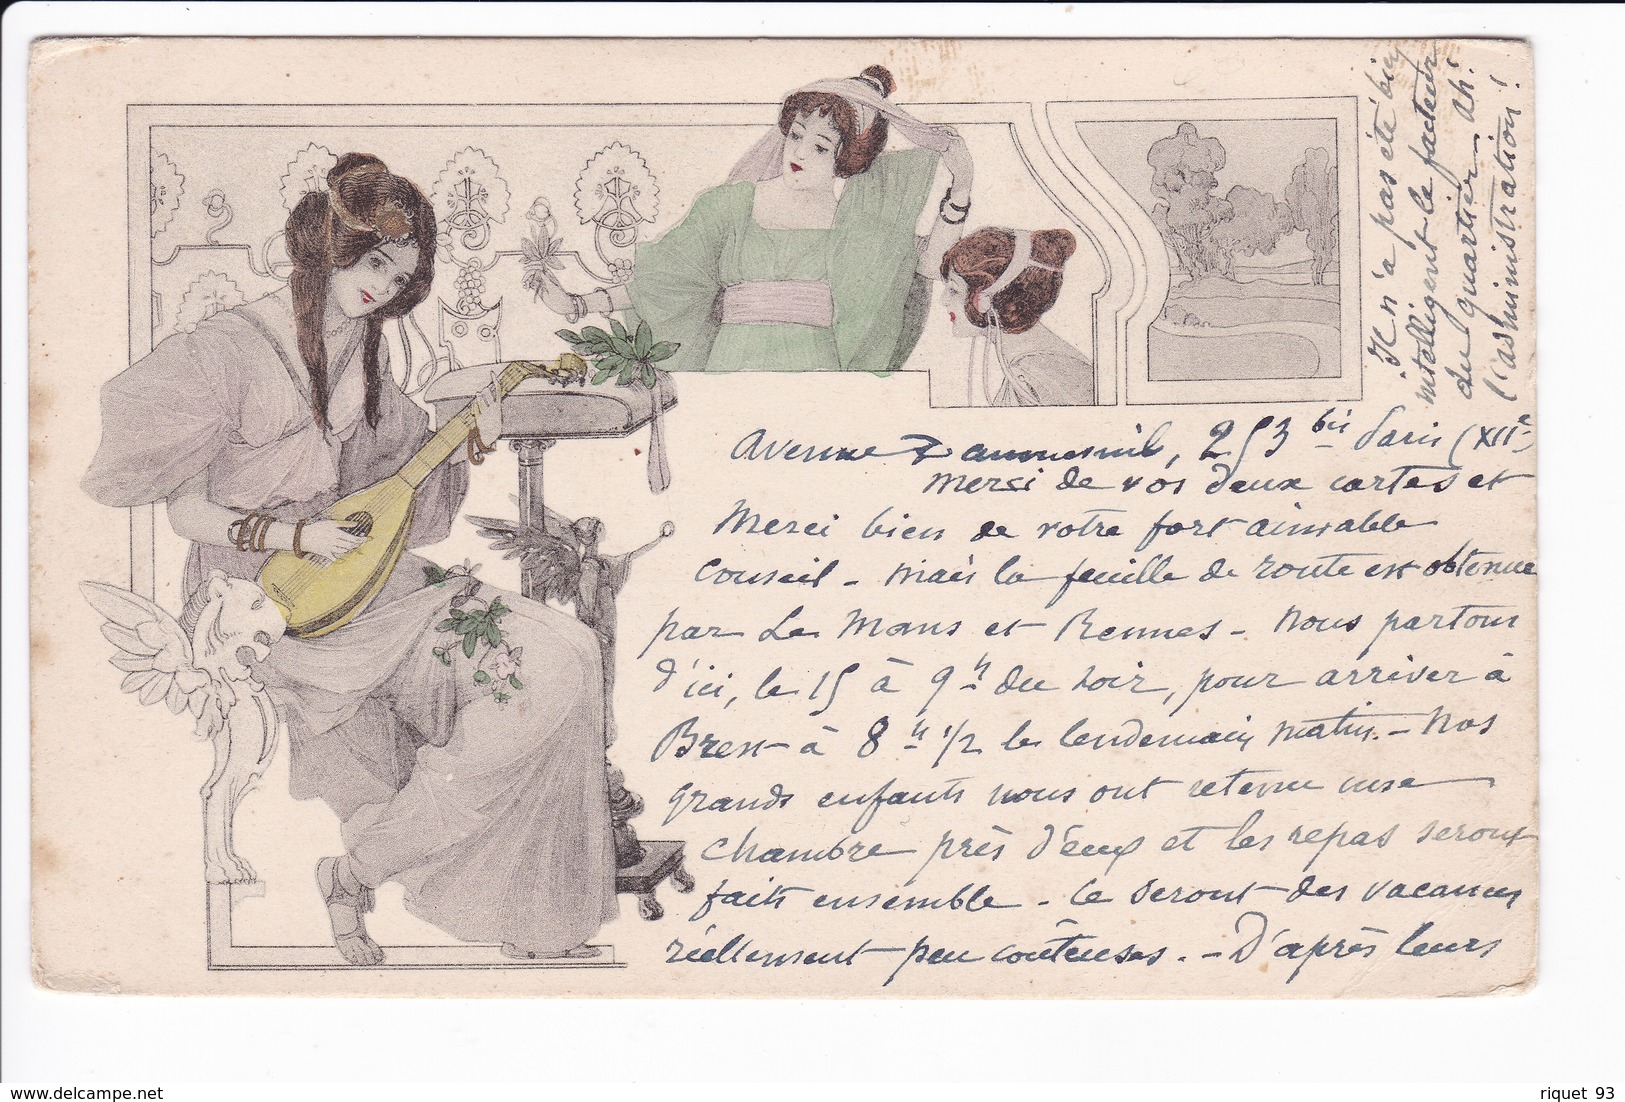 Avenue Daumesnil, 253 bis Paris (XIIe)
Merci de vos deux cartes et
Merci bien de votre fort aimable
conseil - mais la feuille de route est obtenue
par Le Mans et Rennes - Nous partons
d'ici, le 15 à 9 h du soir, pour arriver à
Brest à 8 h 1/2 le lendemain matin. - Nos
grands enfants nous ont retenu une
chambre près d'eux et les repas seront
faits ensemble - ce seront des vacances
réellement peu coûteuses. - D'après leurs
Il n'a pas été bien
intelligent le facteur
du quartier - Ah!
l'administration!
riquet 93